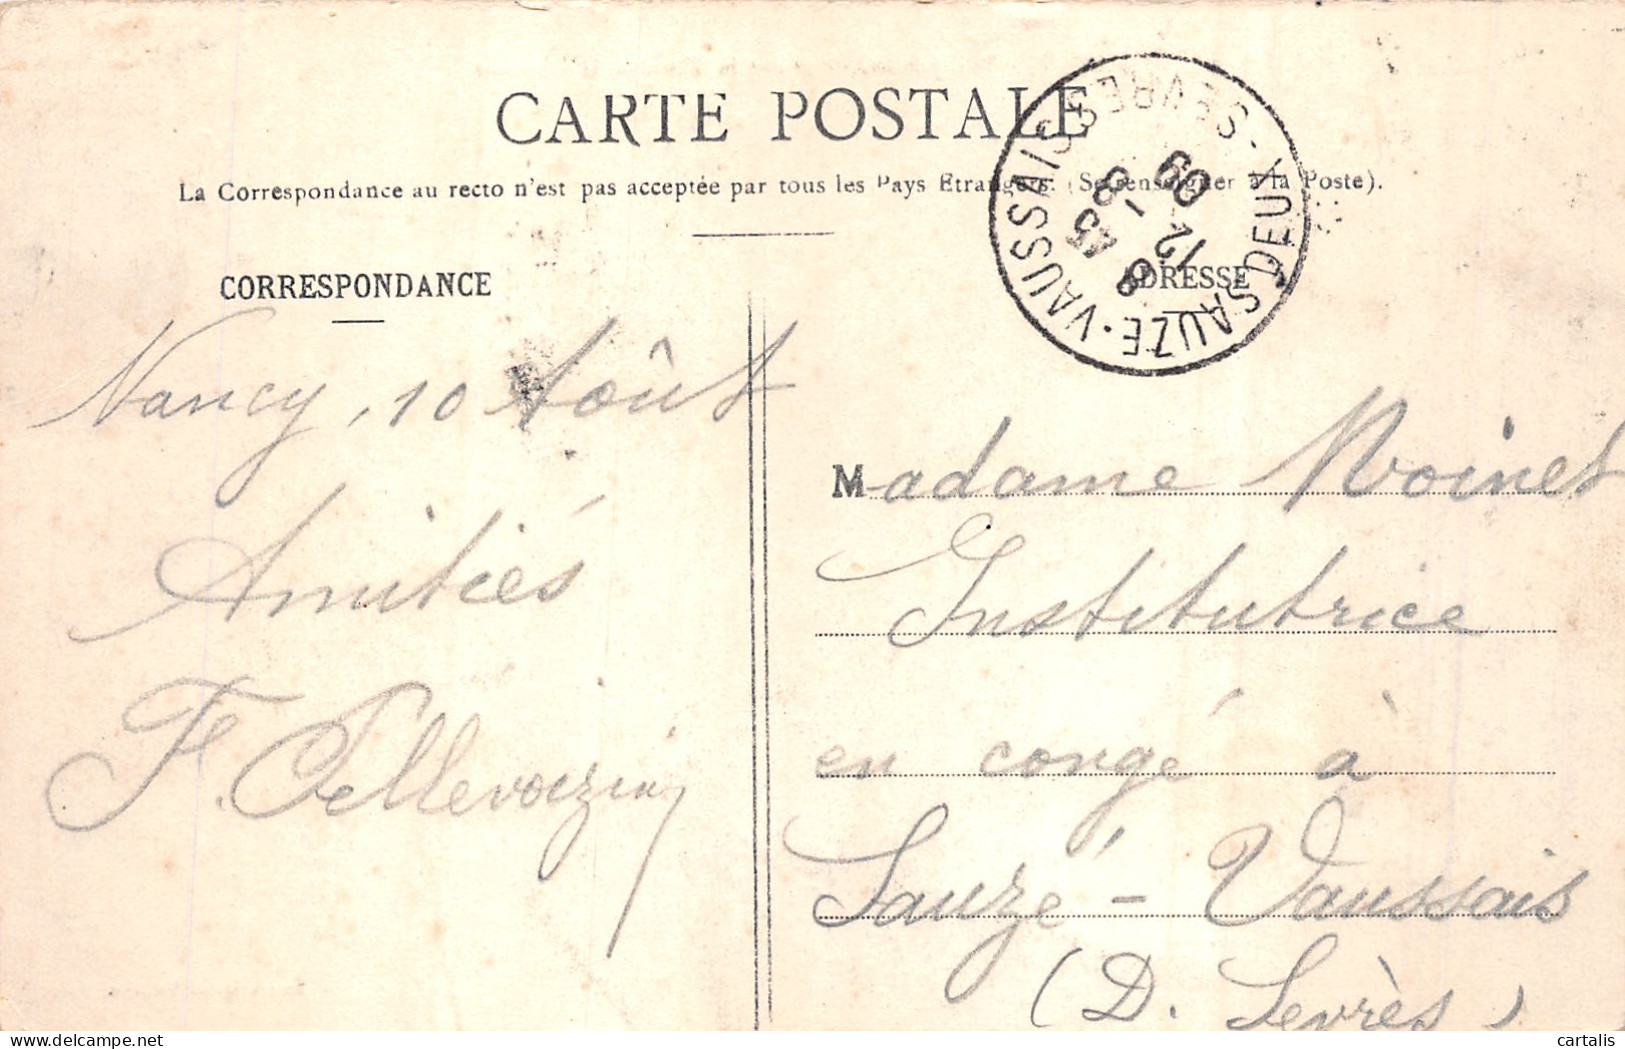 CARTE POSTALE
La Correspondance au recto n'est pas acceptée par tous les Pays Etrangers. (Se renseigner à la Poste).
CORRESPONDANCE
ADRESSE
SAUZE-VAUSSAIS
DEUX-SEVRES
8 45
12 -8
09
Nancy, 10 Août
Amitiés
F. Pellevoizin
Madame Moinet
Institutrice
en congé à
Sauzé - Vaussais
(D. Sèvres)
delcampe.net
cartalis